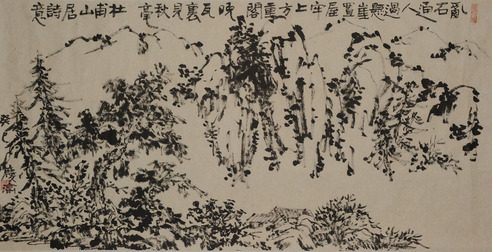 亂石通人過懸崖置屋牢上方重閣晚百裏見秋毫杜甫山居詩意
癸